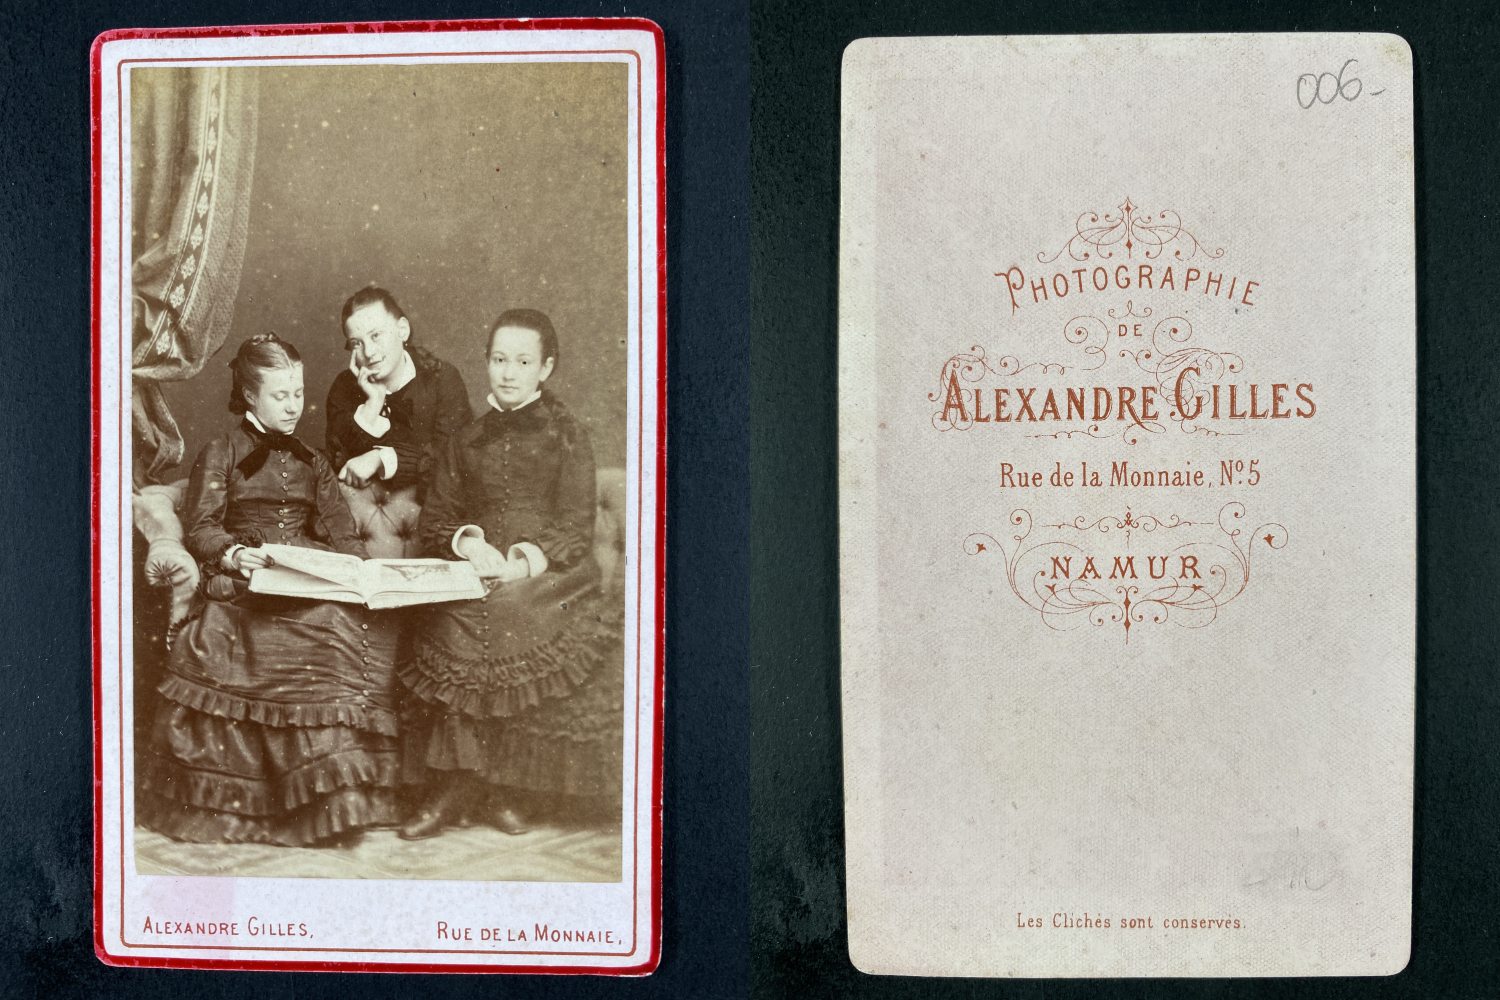 ALEXANDRE GILLES,
RUE DE LA MONNAIE,
006-
PHOTOGRAPHIE
DE
ALEXANDRE GILLES
Rue de la Monnaie, Nº 5
à
NAMUR
Les Clichés sont conservés.